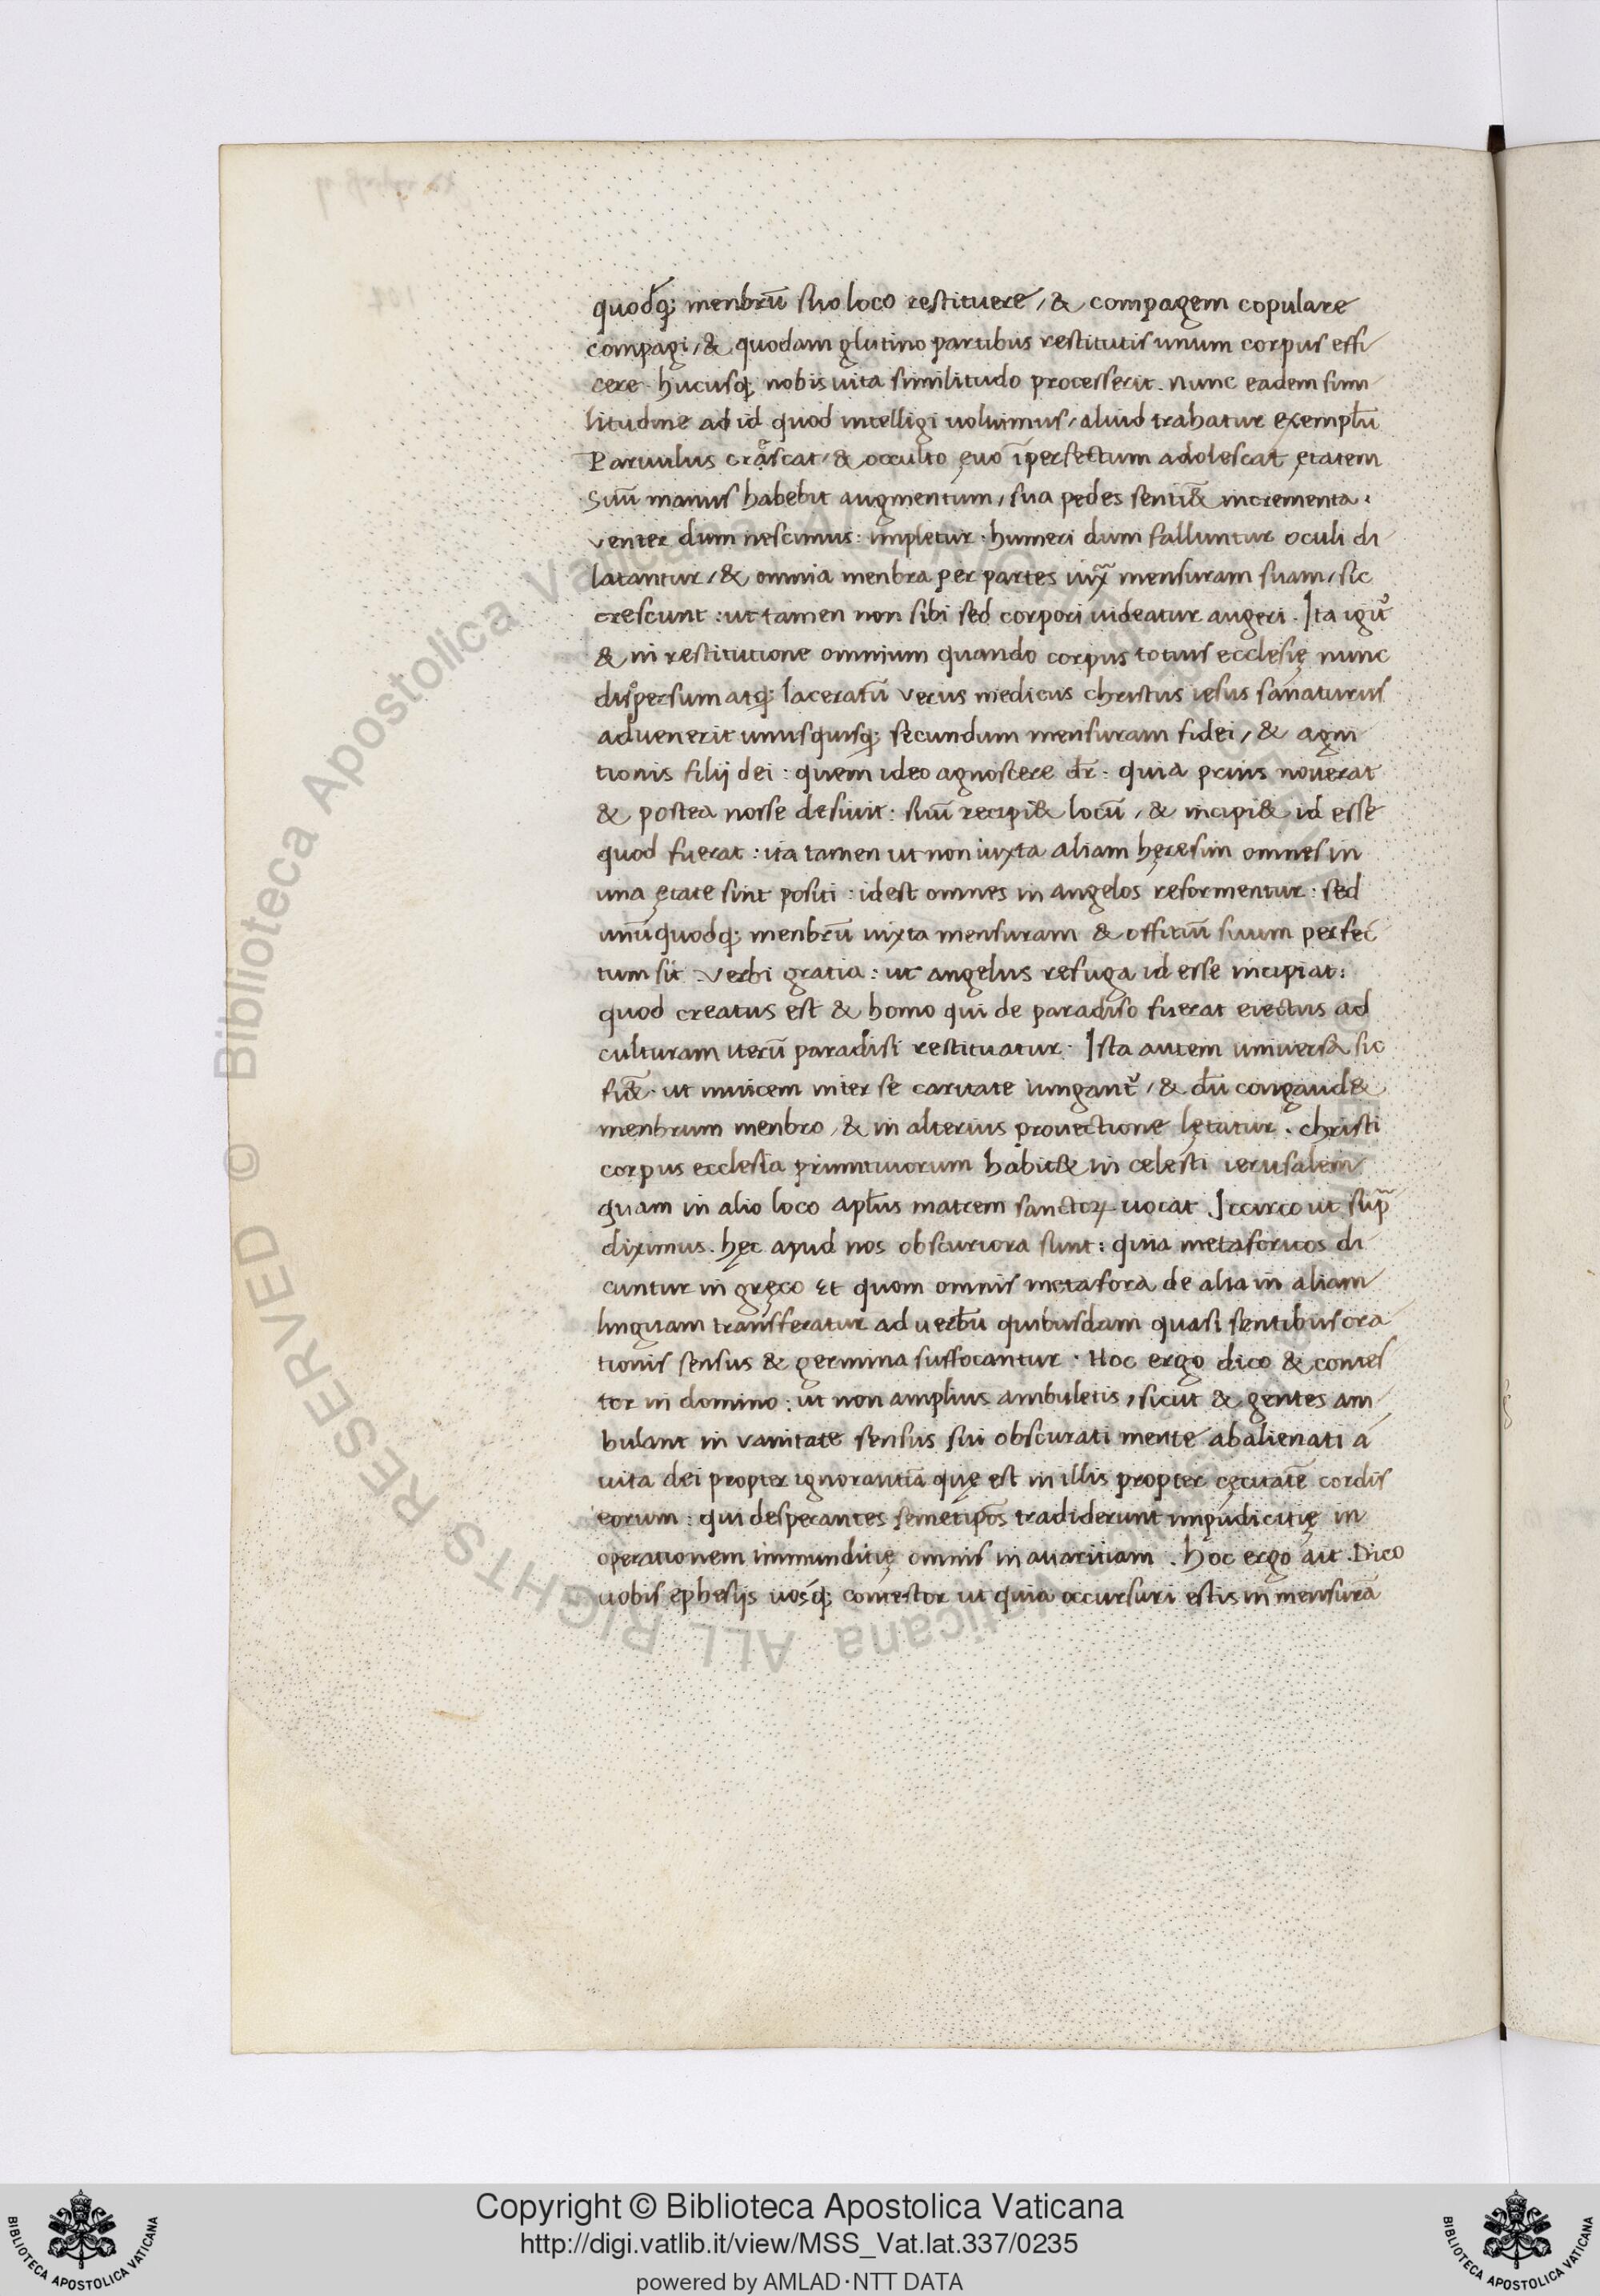 quodq; menbrū suo loco restituere, & compagem copulare
compagi, & quodam glutino partibus restitutis unum corpus effi
cere. hucusq; nobis uita similitudo processerit. nunc eadem simi
litudine ad id quod intelligi uoluimus, aliud trahatur exemplū
Paruulus crescat, & occulto ęuo īperfectum adolescat ętatem
Suū manus habebit augmentum, sua pedes senti& incrementa.
venter dum nescimus: impletur. humeri dum falluntur oculi di
latantur, & omnia menbra per partes iuxᵃ mensuram suam, sic
crescunt: ut tamen non sibi sed corpori uideatur augeri. Ita igit᷑
& in restitutione omnium quando corpus totius ecclesię nunc
dispersum atq; laceratū verus medicus christus iesus sanaturus
aduenerit unusquisq; secundum mensuram fidei, & agni
tionis filij dei: quem ideo agnoscere dr̄: quia prius nouerat
& postea nosse desiuit: suū recipi& locū, & incipi& id esse
quod fuerat: ita tamen ut non iuxta aliam hęresim omnes in
una ętate sint positi: idest omnes in angelos reformentur: sed
unūquodq; menbrū iuxta mensuram & offitiū suum perfec
tum sit. Verbi gratia: ut angelus refuga id esse incipiat:
quod creatus est & homo qui de paradiso fuerat eiectus ad
culturam iterū paradisi restituatur. Ista autem uniuersa sic
fi&. ut inuicem inter se caritate iungant᷑, & dū congaud&
menbrum menbro, & in alterius prouectione lętatur. christi
corpus ecclesia primitiuorum habit& in celesti ierusalem
quam in alio loco apl̄us matrem sanctoꝝ uocat. Iccirco ut supᵃ
diximus. hęc apud nos obscuriora sunt: quia metaforicos di
cuntur in gręco Et quom omnis metafora de alia in aliam
linguam transferatur ad uerbū quibusdam quasi sentibus ora
tionis sensus & germina suffocantur. Hoc ergo dico & contes
tor in domino: ut non amplius ambuletis, sicut & gentes am
bulant in vanitate sensus sui obscurati mente abalienati a
uita dei propter ignorantiā quę est in illis propter cęcitatē cordis
eorum: qui desperantes semetipōs tradiderunt impudicitię in
operationem immunditię omnis in auaritiam. hoc ergo ait. Dico
uobis ephesijs uosq; contestor ut quia occursuri estis in mensurā
Copyright © Biblioteca Apostolica Vaticana
http://digi.vatlib.it/view/MSS_Vat.lat.337/0235
powered by AMLAD·NTT DATA
BIBLIOTECA APOSTOLICA VATICANA
BIBLIOTECA APOSTOLICA VATICANA
© Biblioteca Apostolica Vaticana ALL RIGHTS RESERVED